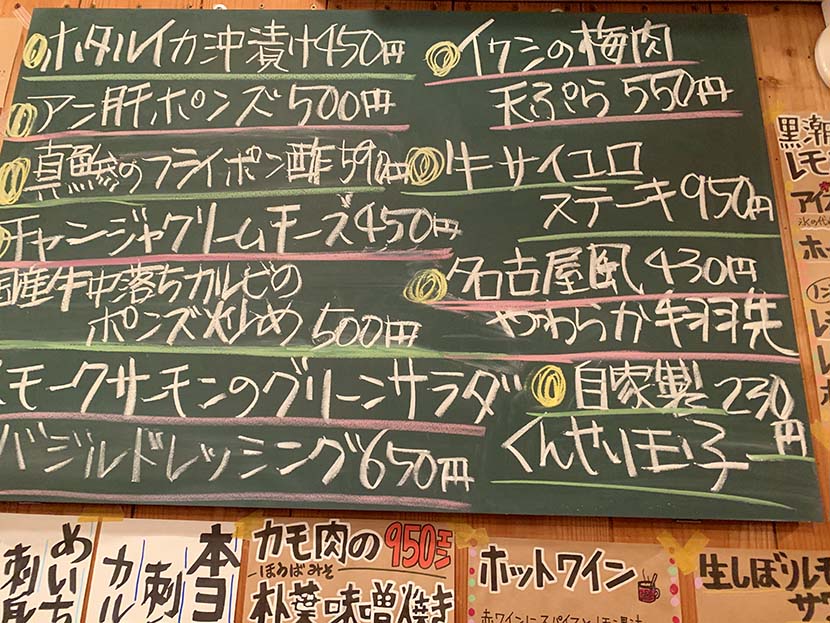 ホタルイカ沖漬け450円
アン肝ポンズ500円
真鯵のフライポン酢590円
チャンジャクリームチーズ450円
国産牛中落ちカルビの
ポンズ炒め500円
スモークサーモンのグリーンサラダ
バジルドレッシング650円
イワシの梅肉
天ぷら550円
牛サイコロ
ステーキ950円
名古屋風430円
やわらか手羽先
自家製230円
くんせい玉子
めいち
刺身
カル
刺
本ヨ
カモ肉の950エン
ほおばみそ
朴葉味噌焼き
ホットワイン
生しぼりレモ
サワ
黒潮
レモ
アイス